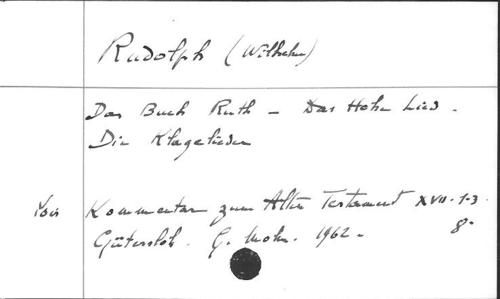 Rudolph (Wilhelm)
Das Buch Ruth - Das Hohe Lied -
Die Klagelieder
Voir Kommentar zum Alten Testament XVII. 1-3.
Gütersloh. G. Mohn. 1962 - 8°